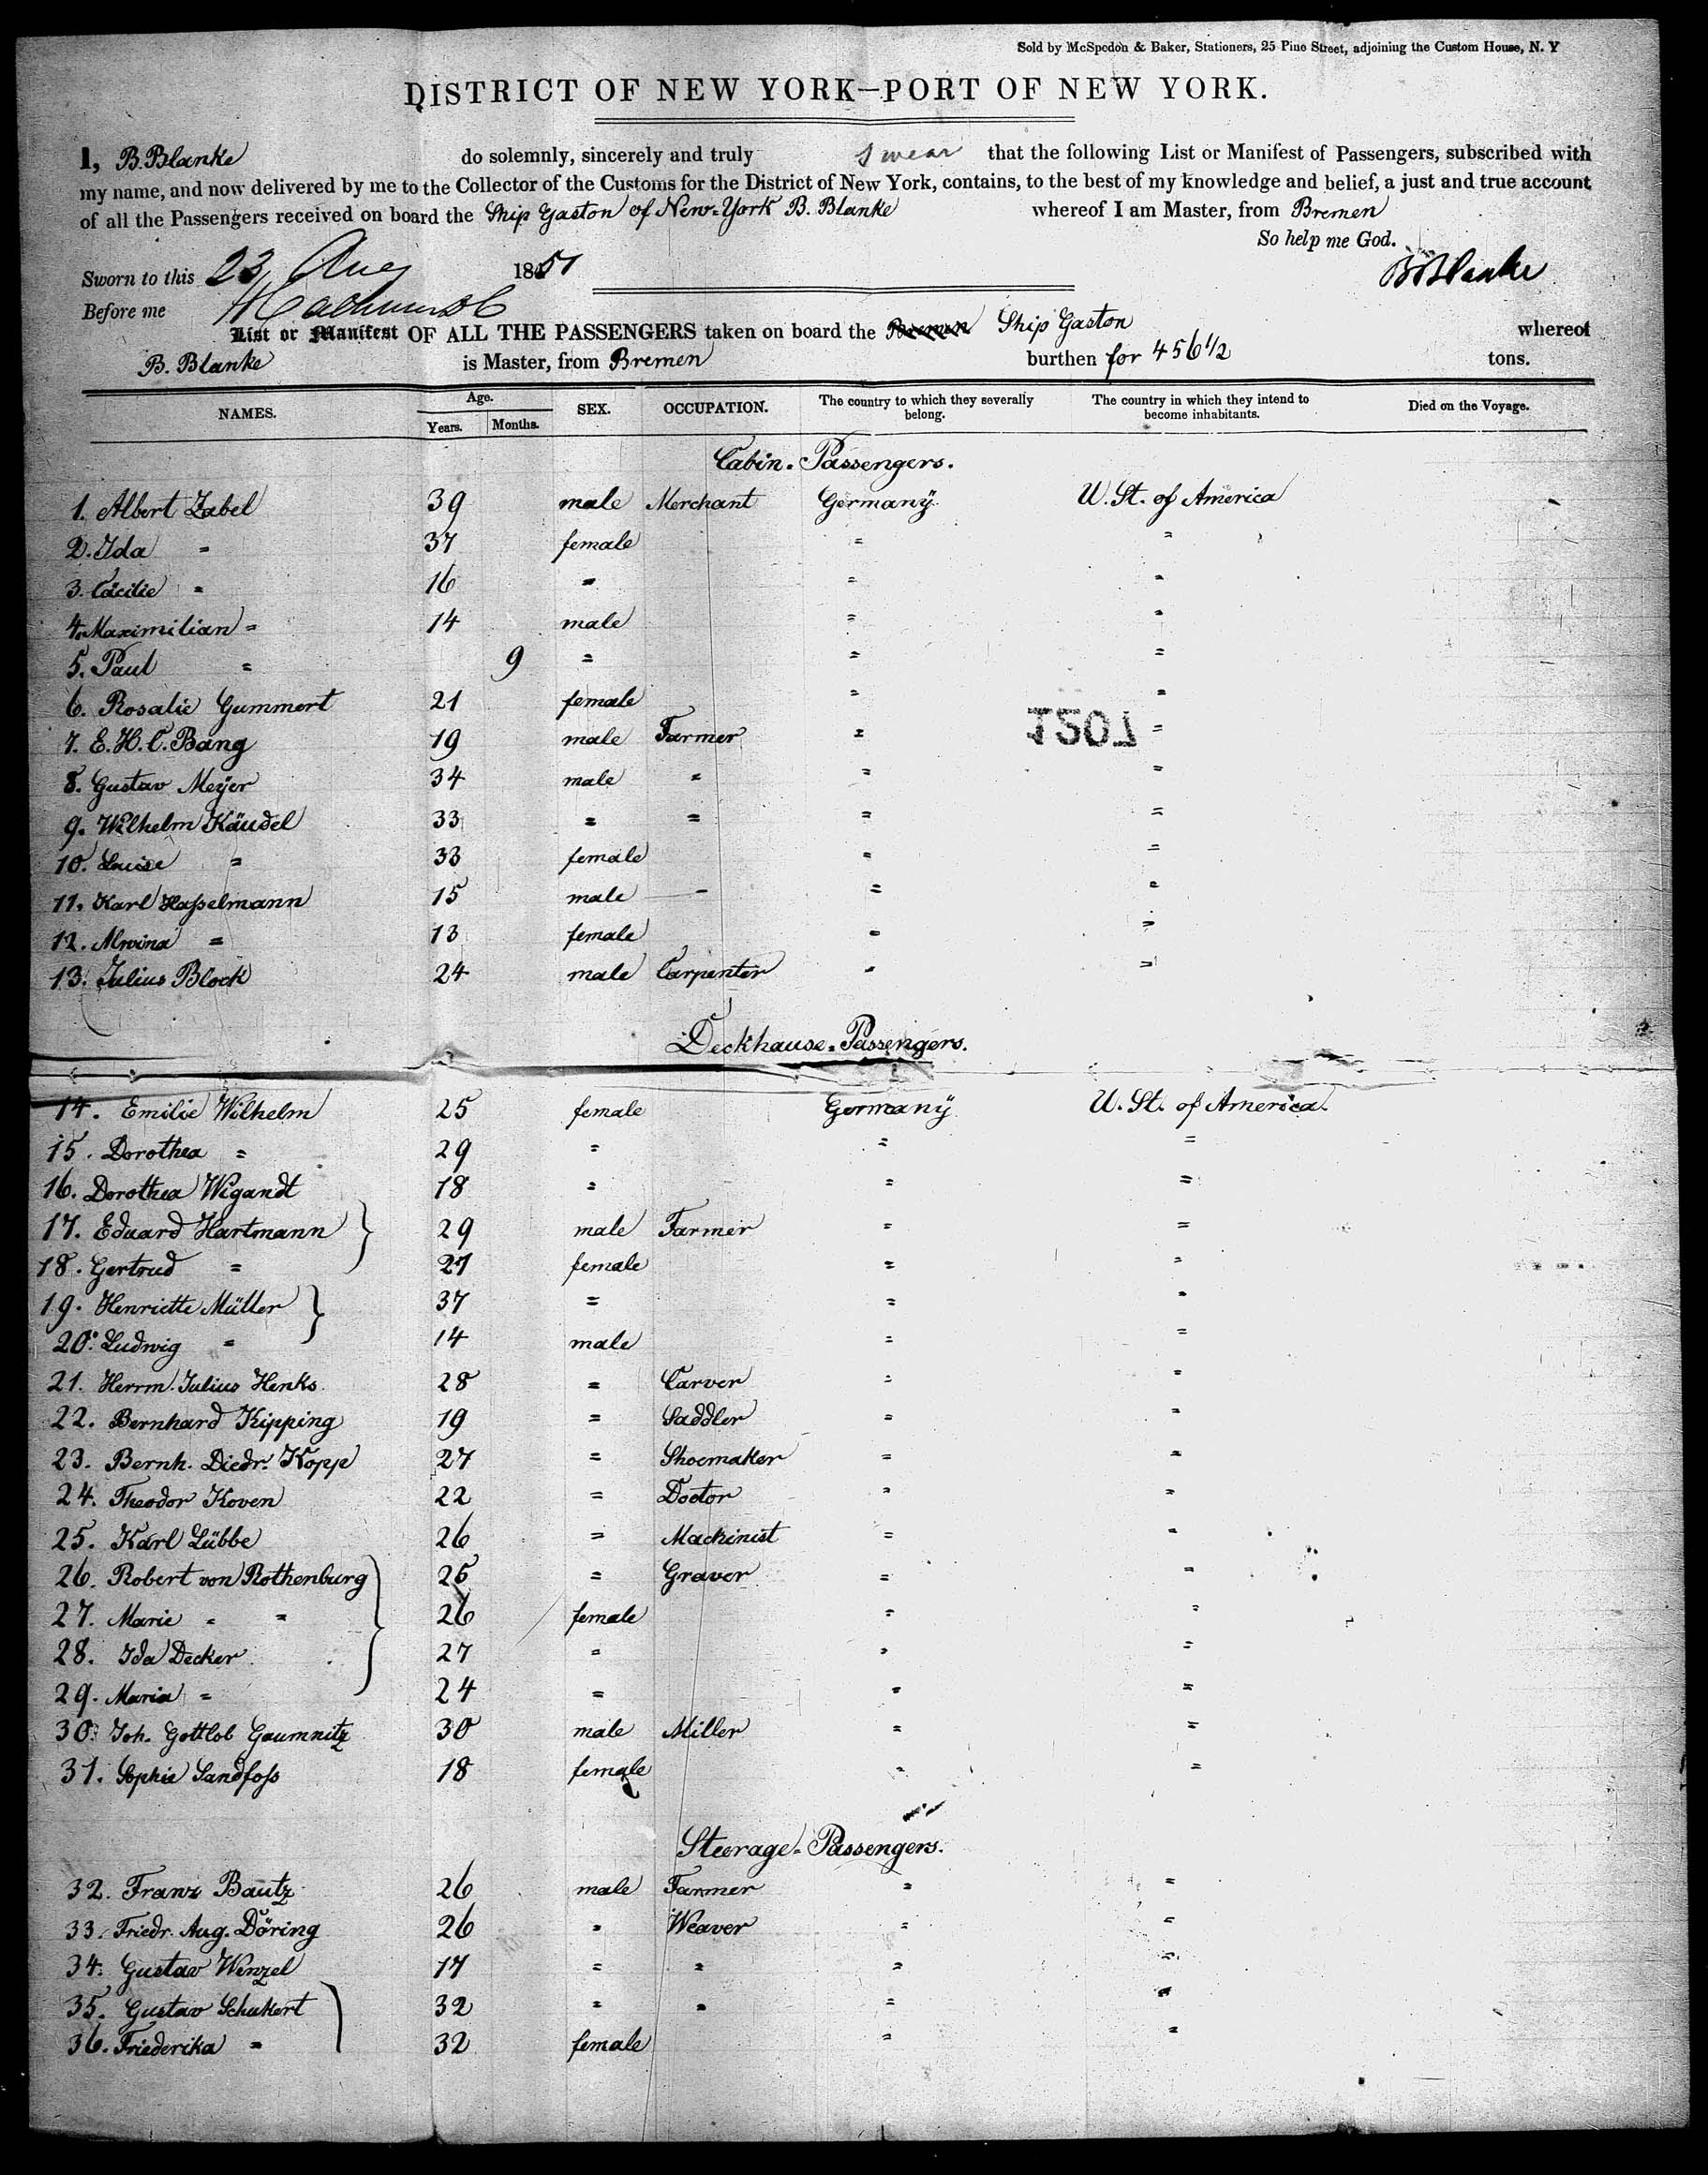 Sold by McSpedon & Baker, Stationers, 25 Pine Street, adjoining the Custom House, N. Y
DISTRICT OF NEW YORK—PORT OF NEW YORK.
I, B. Blanke do solemnly, sincerely and truly swear that the following List or Manifest of Passengers, subscribed with
my name, and now delivered by me to the Collector of the Customs for the District of New York, contains, to the best of my knowledge and belief, a just and true account
of all the Passengers received on board the Ship Gaston of New-York B. Blanke whereof I am Master, from Bremen
So help me God.
Sworn to this 23 Aug 1851 B Blanke
Before me
List or Manifest OF ALL THE PASSENGERS taken on board the Bremen Ship Gaston whereof
B. Blanke is Master, from Bremen burthen for 456 1/2 tons.
NAMES. Age. Years. Months. SEX. OCCUPATION. The country to which they severally belong. The country in which they intend to become inhabitants. Died on the Voyage.
Cabin-Passengers.
1. Albert Zabel 39 male Merchant Germanÿ U. St. of America
2. Ida = 37 female = =
3. Cäcilie = 16 = = =
4. Maximilian = 14 male = =
5. Paul = 9 = = =
6. Rosalie Gummert 21 female = =
7. E. H. C. Bang 19 male Farmer = 1507 =
8. Gustav Meÿer 34 male = = =
9. Wilhelm Käudel 33 = = = =
10. Louise = 33 female = =
11. Karl Haßelmann 15 male - = =
12. Alwina = 13 female = =
13. Julius Block 24 male Carpenter = =
Deckhause-Passengers.
14. Emilie Wilhelm 25 female Germanÿ U. St. of America.
15. Dorothea = 29 = = =
16. Dorothea Wigandt 18 = = =
17. Eduard Hartmann 29 male Farmer = =
18. Gertrud = 27 female = =
19. Henriette Müller 37 = = =
20. Ludwig = 14 male = =
21. Herrm. Julius Henks 28 = Carver = =
22. Bernhard Kipping 19 = Saddler = =
23. Bernh. Diedr. Kopp 27 = Shoemaker = =
24. Theodor Koven 22 = Doctor = =
25. Karl Lübbe 26 = Machinist = =
26. Robert von Rothenburg 26 = Graver = =
27. Marie = = 26 female = =
28. Ida Decker 27 = = =
29. Maria = 24 = = =
30. Joh. Gottlob Gaumnitz 30 male Miller = =
31. Sophie Sandfoß 18 female = =
Steerage-Passengers.
32. Franz Bautz 26 male Farmer = =
33. Friedr. Aug. Döring 26 = Weaver = =
34. Gustav Wenzel 17 = = = =
35. Gustav Schukert 32 = = = =
36. Friederika = 32 female = =